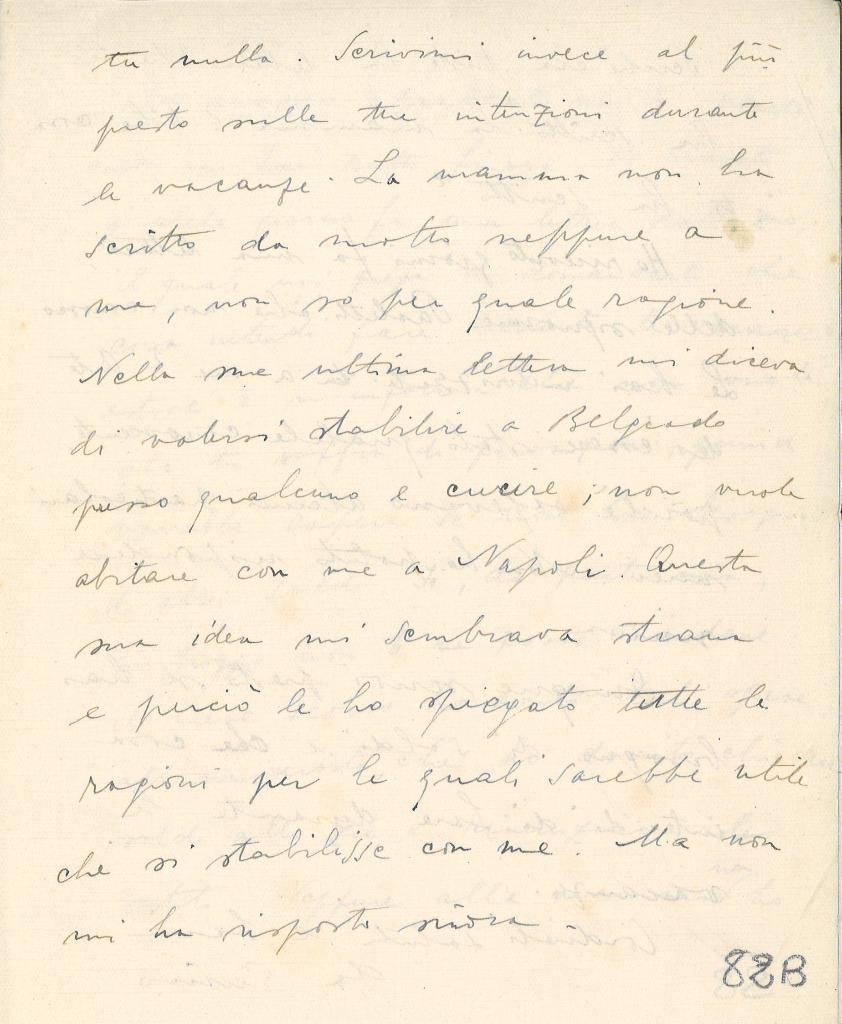 tu nulla. Scrivimi invece al più
presto sulle tue intenzioni durante
le vacanze. La mamma non ha
scritto da molto neppure a
me, non so per quale ragione.
Nella sua ultima lettera mi diceva
di volersi stabilire a Belgrado
presso qualcuno e cucire; non vuole
abitare con me a Napoli. Questa
sua idea mi sembrava strana
e perciò le ho spiegato tutte le
ragioni per le quali sarebbe utile
che si stabilisse con me. Ma non
mi ha risposto sinora.
82B